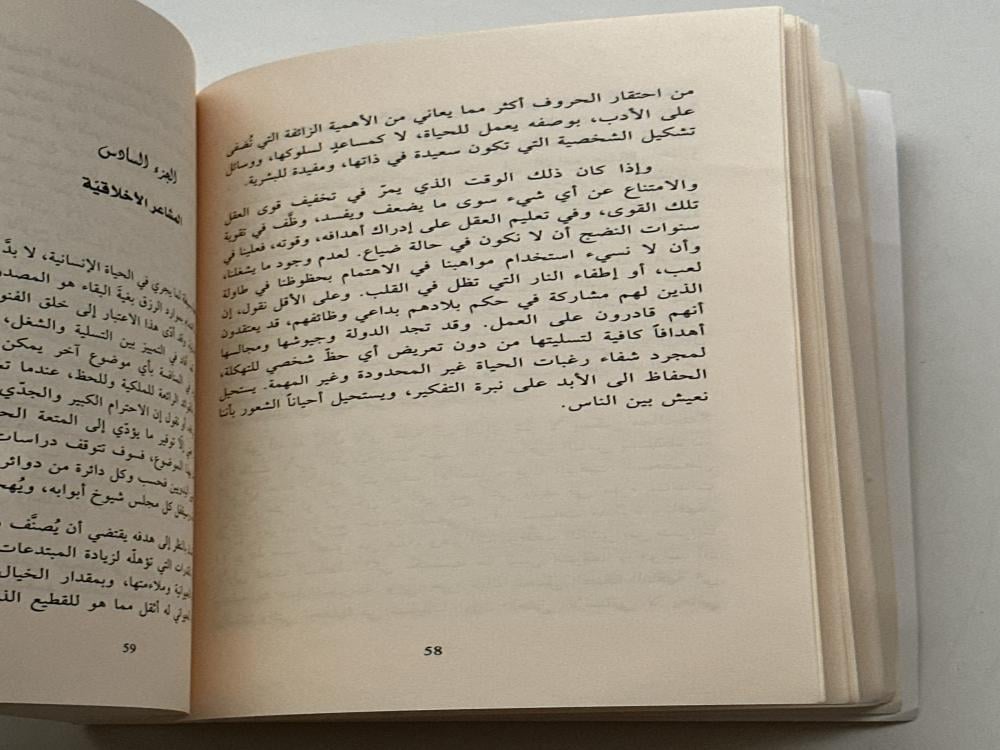 من احتقار الحروف أكثر مما يعاني من الأهمية الزائفة التي تُضفى
على الأدب، بوصفه يعمل للحياة، لا كمساعدٍ لسلوكها، ووسائل
تشكيل الشخصية التي تكون سعيدة في ذاتها، ومفيدة للبشرية.
وإذا كان ذلك الوقت الذي يمرّ في تخفيف قوى العقل
والامتناع عن أي شيء سوى ما يضعف ويفسد، وظَّف في تقوية
تلك القوى، وفي تعليم العقل على إدراك أهدافه، وقوته، فعلينا في
سنوات النضج أن لا نكون في حالة ضياع. لعدم وجود ما يشغلنا،
وأن لا نسيء استخدام مواهبنا في الاهتمام بحظوظنا في طاولة
لعب، أو إطفاء النار التي تظل في القلب. وعلى الأقل نقول، إن
الذين لهم مشاركة في حكم بلادهم بداعي وظائفهم، قد يعتقدون
أنهم قادرون على العمل. وقد تجد الدولة وجيوشها ومجالسها
أهدافاً كافية لتسليتها من دون تعريض أي حظّ شخصي للتهلكة،
لمجرد شفاء رغبات الحياة غير المحدودة وغير المهمة. يستحيل
الحفاظ الى الأبد على نبرة التفكير، ويستحيل أحياناً الشعور بأننا
نعيش بين الناس.
58
الجزء السادس
المشاعر الأخلاقيّة
لما يجري في الحياة الإنسانية، لا بدَّ
موارد الرزق بغية البقاء هو المصدر
وقد أدّى هذا الاعتبار إلى خلق الفنو
في التمييز بين التسلية والشغل،
في المنافسة بأي موضوع آخر يمكن
الرائعة للملكية وللحظ، عندما تع
نقول إن الاحترام الكبير والجدّي
إلّا توفير ما يؤدّي إلى المتعة الح
الموضوع، فسوف تتوقف دراسات
فحسب وكل دائرة من دوائر
كل مجلس شيوخ أبوابه، ويُهم
بالنظر إلى هدفه يقتضي أن يُصنَّف
التي تؤهلّه لزيادة المبتدعات
وملاءمتها، وبمقدار الخيال
له أثقل مما هو للقطيع الذ
59